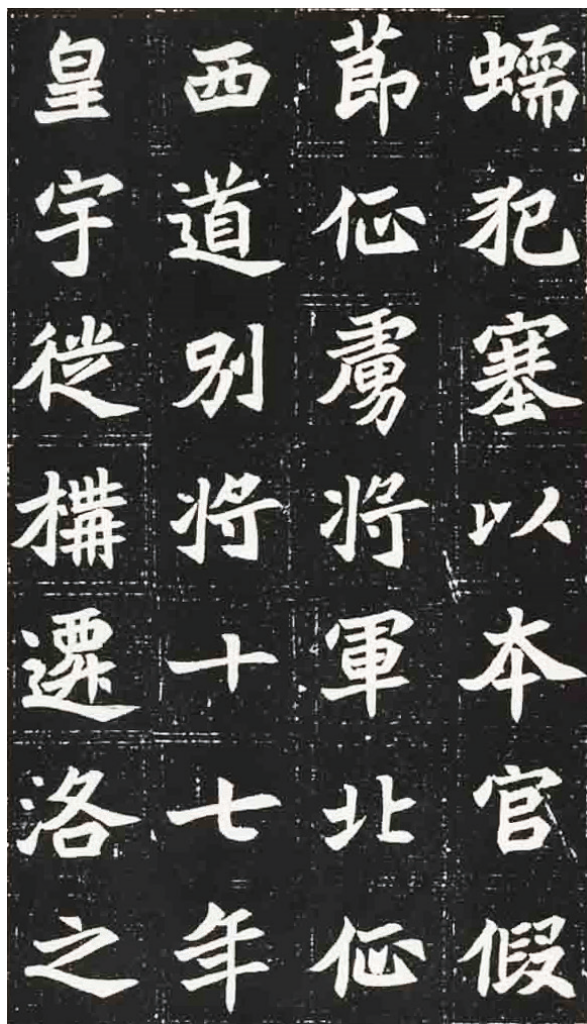 蠕犯塞以本官假
節征虜將軍北征
西道別將十七年
皇宇徙構遷洛之